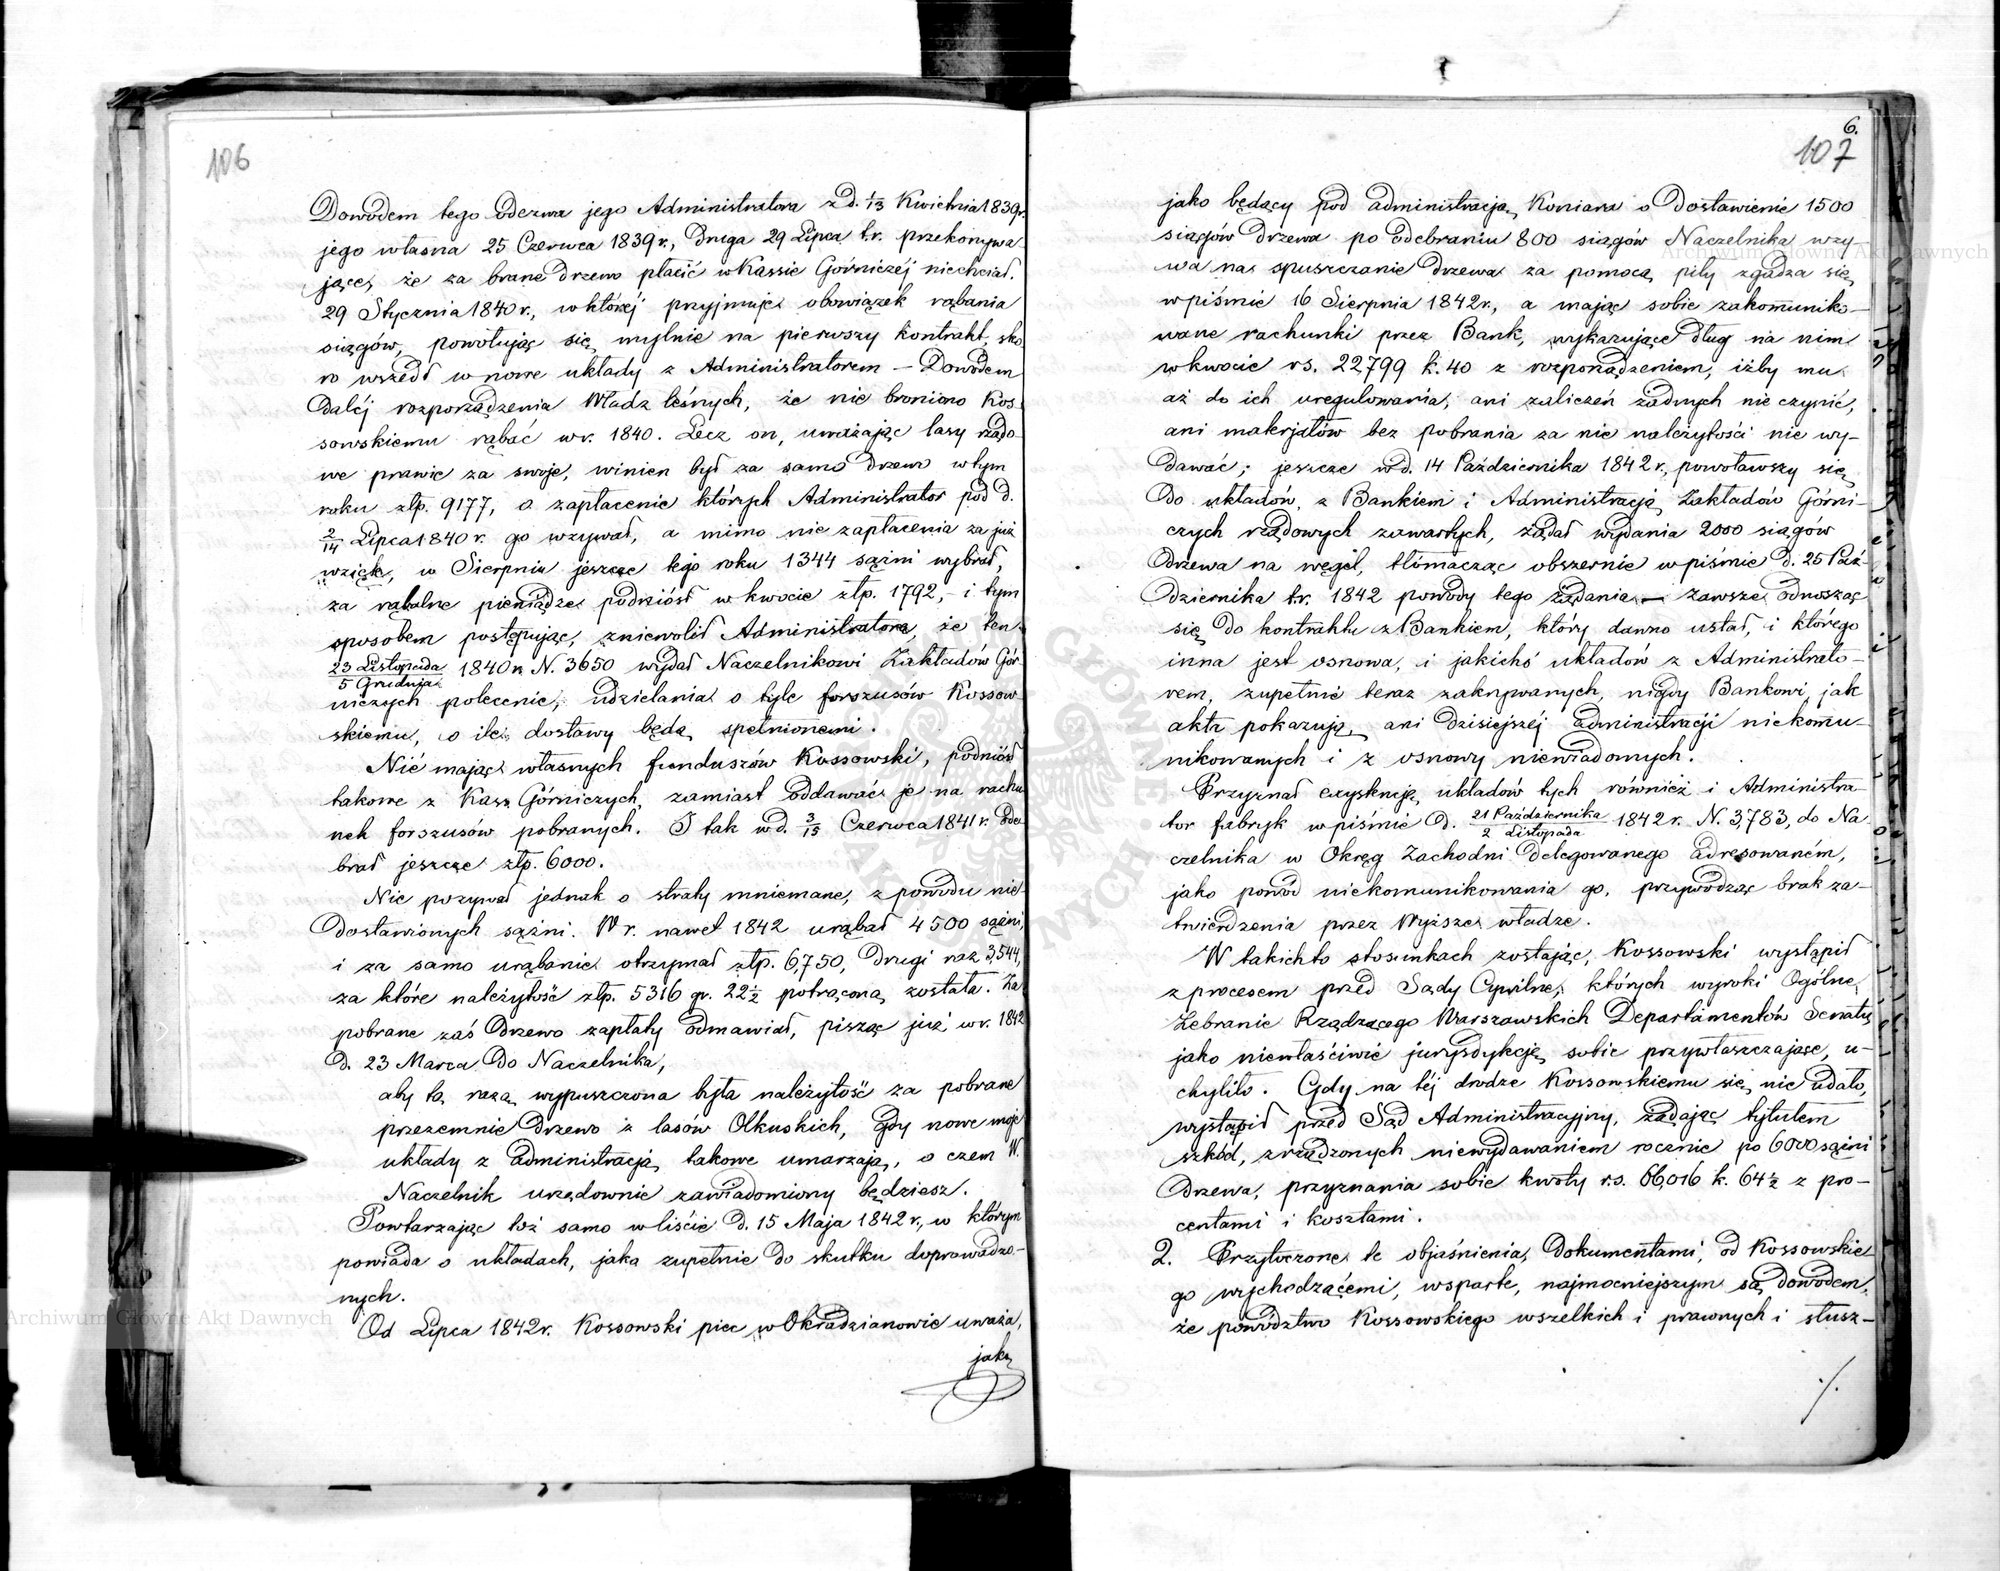 106
Dowodem tego odezwa jego Administratora z d. 1/13 Kwietnia 1839 r.
jego własna 25 Czerwca 1839 r., druga 29 Lipca t.r. przekonywa
jące, że za brane drzewo płacić w Kassie Górniczéj niechciał.
29 Stycznia 1840 r., w któréj przyjmuje obowiązek rąbania
siągów, powołując się mylnie na pierwszy kontrakt, sko
ro wszedł w nowe układy z Administratorem – Dowodem
daléj rozporządzenia Władz leśnych, że nie broniono Kos
sowskiemu rąbać w r. 1840. Lecz on, uważając lasy rządo
we prawie za swoje, winien był za samo drzewo w tym
roku złp. 9177, o zapłacenie których Administrator pod d.
2/14 Lipca 1840 r. go wzywał, a mimo nie zapłacenia za już
wzięte, w Sierpniu jeszcze tego roku 1344 sążni wybrał,
za rąbalne pieniądze podniósł w kwocie złp. 1792, i tym
sposobem postępując, zniewolił Administratora, że ten
23 Listopada/5 Grudnia 1840 r. N. 3650 wydał Naczelnikowi Zakładów Gór
niczych polecenie, udzielania o tyle forszusów Kossow
skiemu, o ile dostawy będą spełnionemi.
Nie mając własnych funduszów Kossowski, podniósł
takowe z Kass Górniczych, zamiast oddawać je na rachu
nek forszusów pobranych. I tak w d. 3/15 Czerwca 1841 r. ode
brał jeszcze złp. 6000.
Nie pozywał jednak o straty mniemane, z powodu nie
dostawionych sążni. W r. nawet 1842 urąbał 4500 sążni,
i za samo urąbanie otrzymał złp. 6,750, drugi raz 3,544,
za które należytość złp. 5316 gr. 22½ potrąconą została. Za
pobrane zaś drzewo zapłaty odmawiał, pisząc już w r. 1842
d. 23 Marca do Naczelnika,
aby tą razą wypuszczona była należytość za pobrane
przezemnie drzewo z lasów Olkuskich, gdy nowe moje
układy z administracją takowe umarzają, o czem W.
Naczelnik urzędownie zawiadomiony będziesz.
Powtarzając toż samo w liście d. 15 Maja 1842 r., w którym
powiada o układach, jako zupełnie do skutku doprowadzo-
nych.
Od Lipca 1842 r. Kossowski piec w Okradzianowie uważa,
jako
6.
107
jako będący pod administracją, Koniara o dostawienie 1500
siągów drzewa po odebraniu 800 siągów Naczelnika wzy-
wa na spuszczanie drzewa za pomocą piły zgadza się
w piśmie 16 Sierpnia 1842 r., a mając sobie zakomuniko-
wane rachunki przez Bank, wykazujące dług na nim
w kwocie rs. 22799 k. 40 z rozporządzeniem, iżby mu
aż do ich uregulowania, ani zaliczeń żadnych nie czynić,
ani materjałów bez pobrania za nie należytości nie wy-
dawać; jeszcze w d. 14 Października 1842 r. powoławszy się
do układów z Bankiem i Administracją Zakładów Górni-
czych rządowych zawartych, żądał wydania 2000 siągów
drzewa na węgiel, tłómacząc obszernie w piśmie d. 25 Paź-
dziernika t.r. 1842 powody tego żądania – zawsze odnosząc
się do kontraktu z Bankiem, który dawno ustał, i którego
inna jest osnowa, i jakichś układów z Administrato-
rem, zupełnie teraz zakrywanych, nigdy Bankowi, jak
akta pokazują, ani dzisiejszéj administracji niekomu-
nikowanych i z osnowy niewiadomych.
Przyznał exystencją układów tych również i Administra-
tor fabryk w piśmie d. 21 Października/2 Listopada 1842 r. N. 3,783, do Na
czelnika w Okręg Zachodni delegowanego adresowaném,
jako powód niekomunikowania go, przywodząc brak za-
twierdzenia przez Wyższe władze.
W takichto stosunkach zostając, Kossowski wystąpił
z procesem przed Sądy Cywilne, których wyroki Ogólne
Zebranie Rządzącego Warszawskich Departamentów Senatu,
jako niewłaściwie jurysdykcję sobie przywłaszczające, u-
chyliło. Gdy na téj drodze Kossowskiemu się nie udało,
wystąpił przed Sąd Administracyjny, żądając tytułem
szkód, zrządzonych niewydawaniem rocznie po 6000 sążni
drzewa, przyznania sobie kwoty rs. 66,016 k. 64½ z pro-
centami i kosztami.
2. Przytoczone te objaśnienia, dokumentami, od Kossowskie
go wychodzącémi, wsparte, najmocniejszym są dowodem,
że powództwo Kossowskiego wszelkich i prawnych i słusz-
./.
Archiwum Główne Akt Dawnych
Archiwum Główne Akt Dawnych